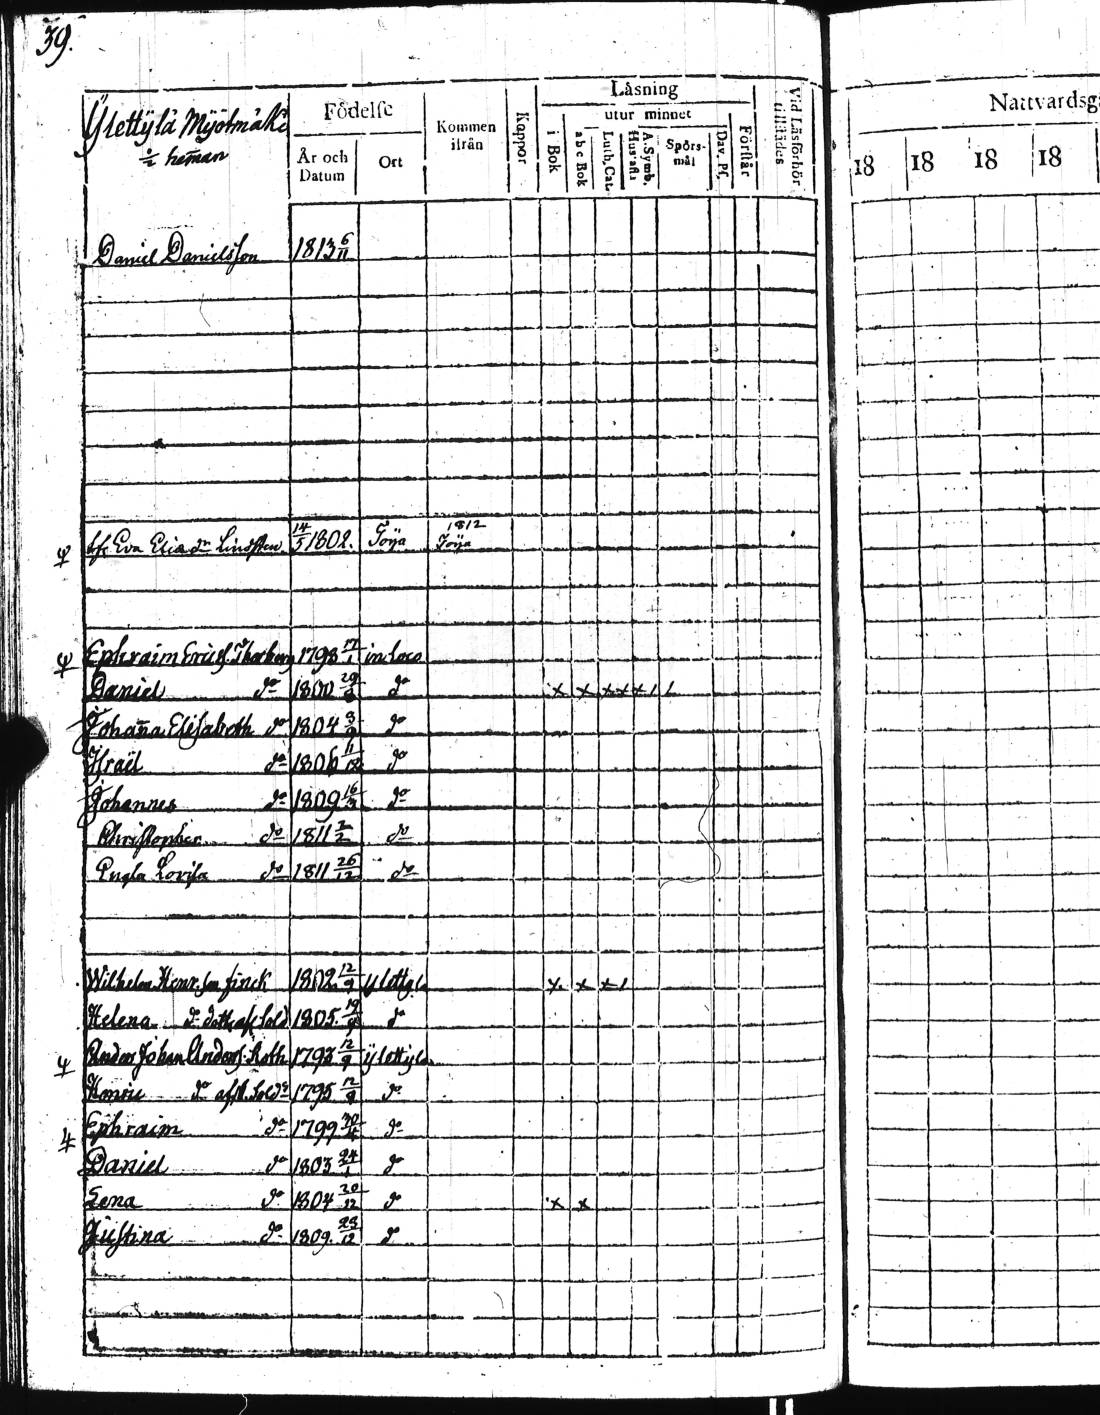 39.
Ylettylä Myötmäki
½ heman
Födelse
År och Datum
Ort
Kommen ifrån
Koppor
Läsning
utur minnet
i Bok
a b c Bok
Luth. Cat.
A. Symb. Hus-tafl.
Spörs-mål
Dav. Ps.
Förstår
Vid Läsförhör tillstädes
Nattvardsg
18 18 18 18
Daniel Danielsson 1813 6/11
Eva Elia dr Lindsten 14/5 1802. Töja 1812 Töja
Ephraim Ericss. Thorberg 1798 17/1 in loco
Daniel do 1800 29/8 do x x x x x 1 1
Johana Elisabeth do 1804 3/9 do
Israël do 1806 11/12 do
Johannes do 1809 16/3 do
Christopher do 1811 2/2 do
Engla Lovisa do 1811 26/12 do
Wilhelm Henr. son finck 1802 12/9 Ylettyla x x x 1
Helena do 1805. 19/4 do
Johan Anders. Roth 1793 12/9 ÿlettyla
Henric do 1795 12/9 do
Ephraim do 1799 30/4 do
Daniel do 1803 24/1 do
Lena do 1804 20/12 do x x
Justina do 1809. 23/12 do